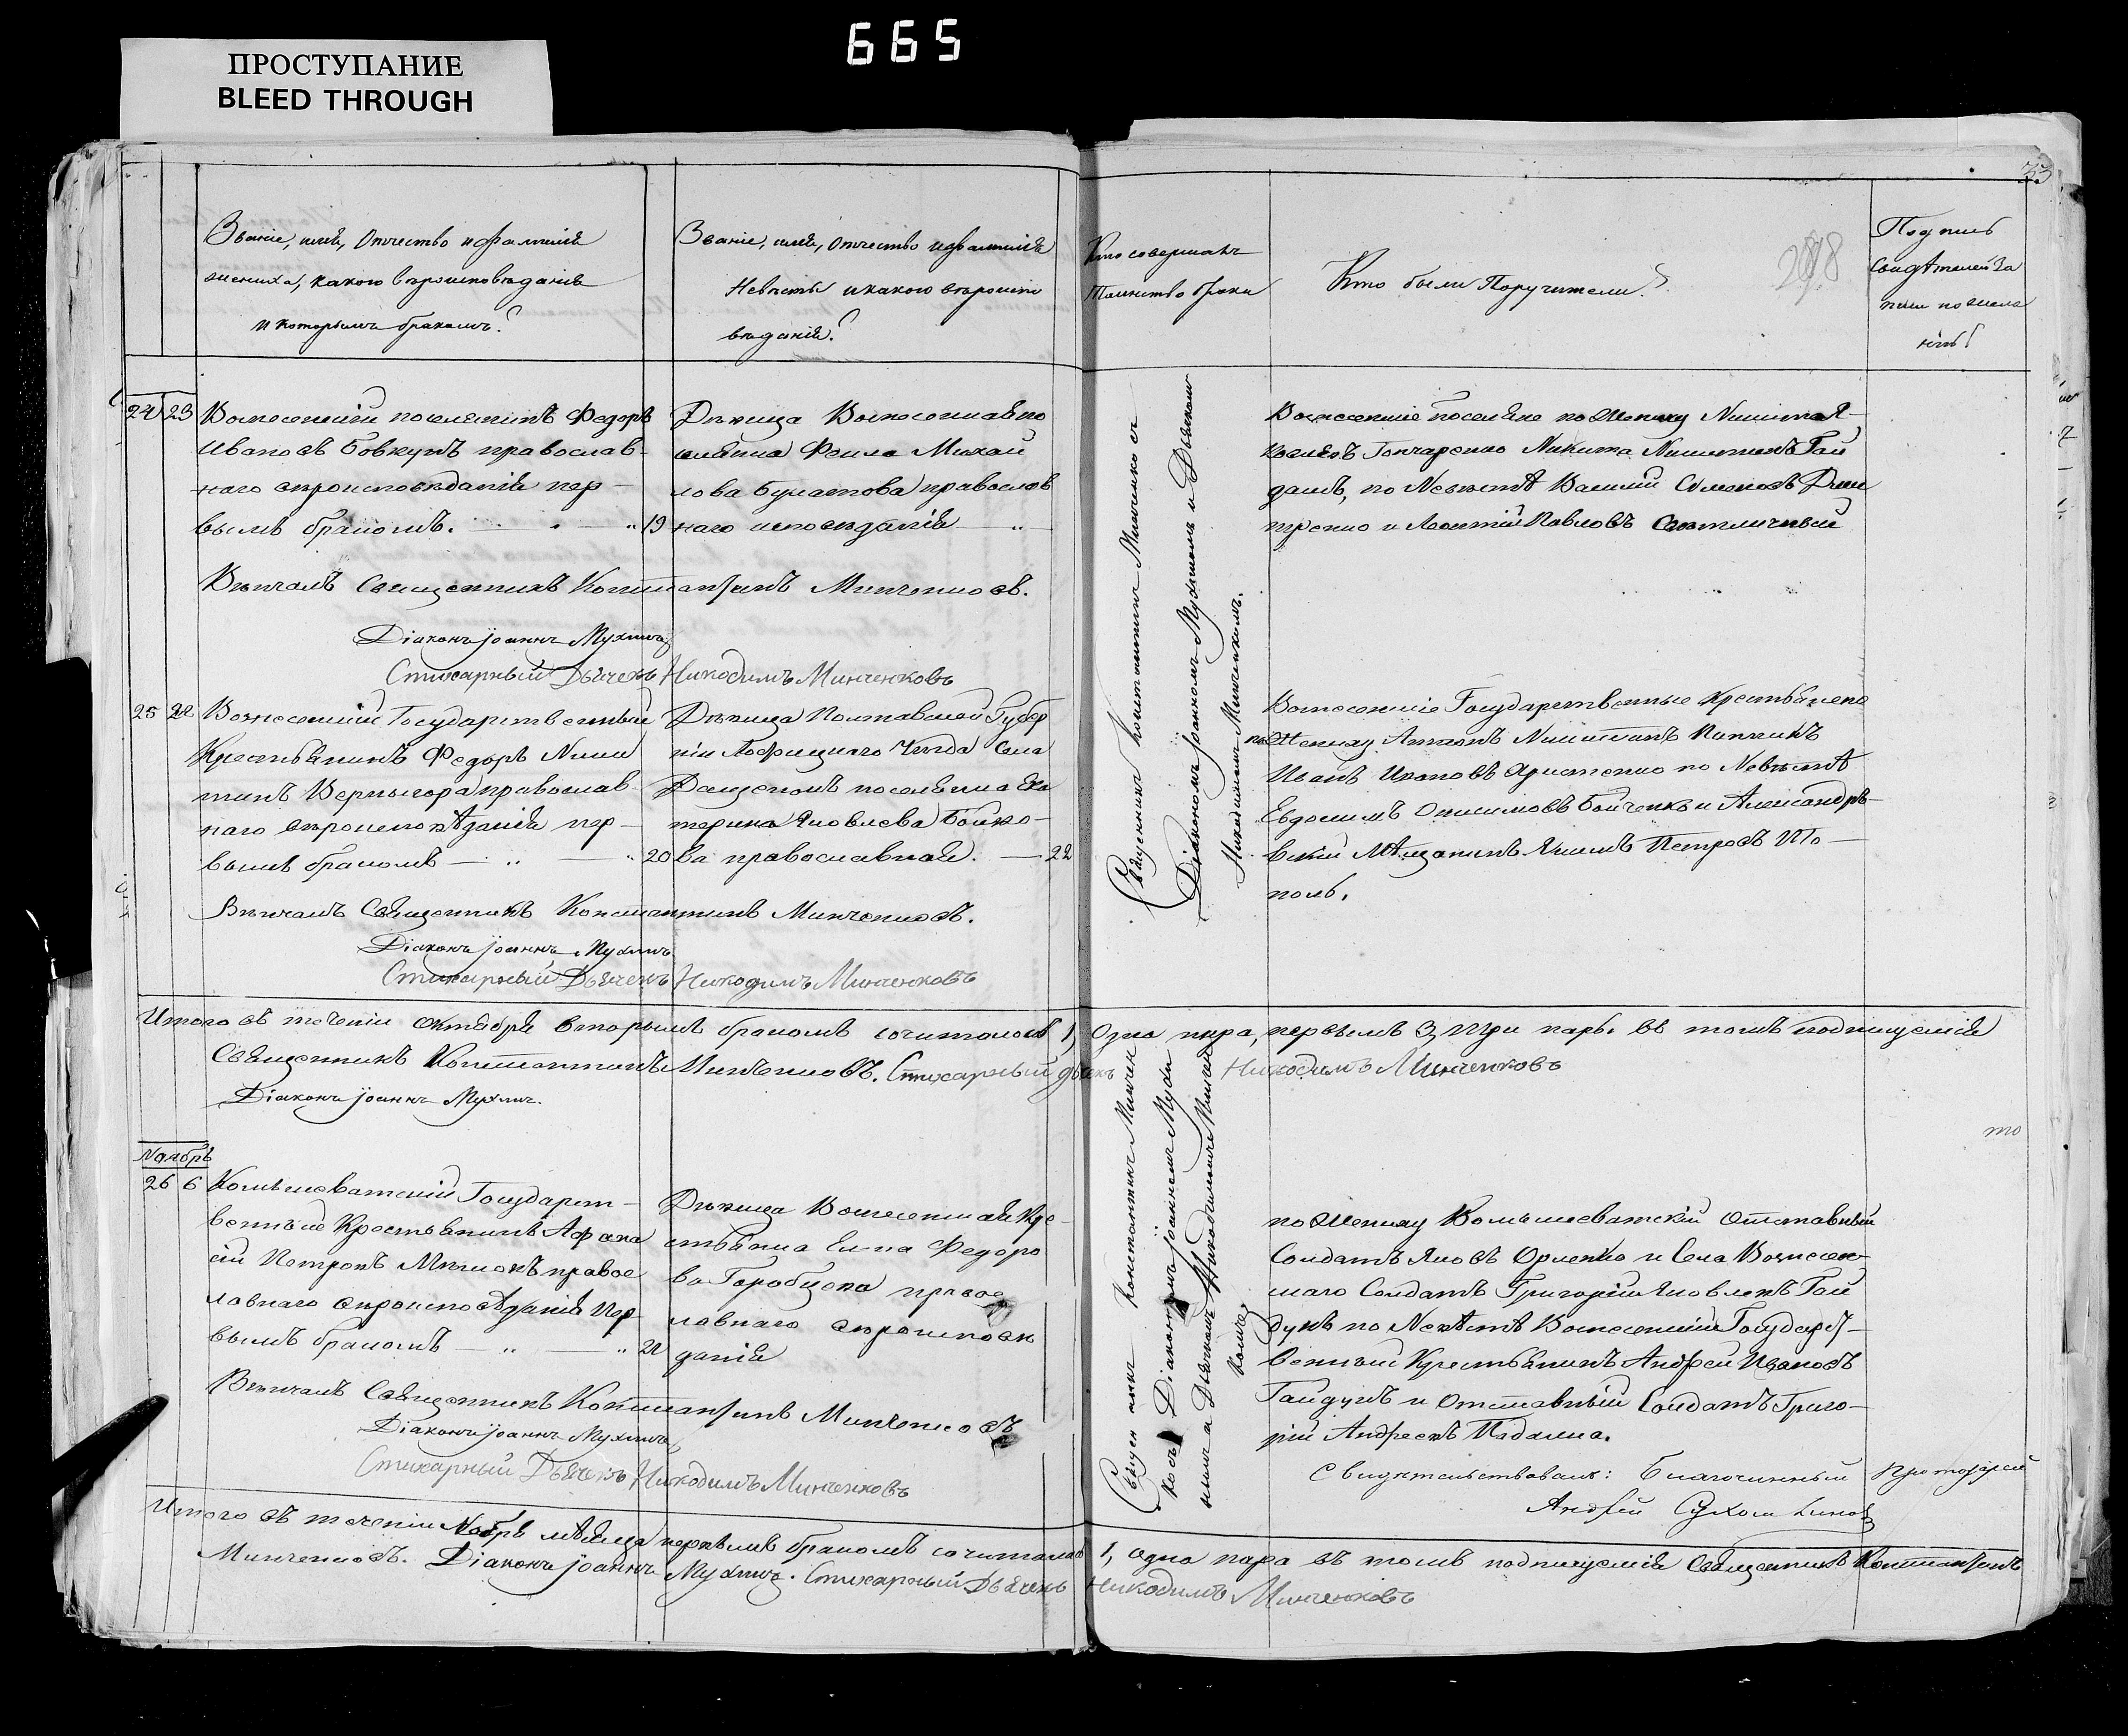 665
ПРОСТУПАНИЕ
BLEED THROUGH
33
Званіе, имя, Отчество и фамилія
жениха, какого вѣроисповѣданія
и которымъ бракомъ?
Званіе, имя, Отчество и фамилія
Невѣсты и какого вѣроиспо
вѣданія?
Кто совершалъ
Таинство брака
Кто были Поручители?
298
Подпись
Свидѣтелей за
писи по жела
нію
24 23 Вознесенскій поселянинъ Федоръ
Ивановъ Бовкунъ православ-
наго вѣроисповѣданія пер-
вымъ бракомъ. 19
Дѣвица Вознесенская по
селянка Михай
лова Булатова православ
наго исповѣданія
Вѣнчалъ Священникъ Константинъ Минченковъ.
Діаконъ Іоаннъ Мухинъ
Стихарный Дьячекъ Никодимъ Минченковъ
Вознесенскіе поселяне по Жениху Никита Я-
ковлевъ Гончаренко Никита Никитинъ Гай
дамъ, по Невѣстѣ Василій Семеновъ Дми
тренко и Леонтій Павловъ Светличный
Священникъ Константинъ Минченковъ
Діакономъ Іоанномъ Мухинымъ и Дьячкомъ
Никодимомъ Минченковымъ.
25 22 Вознесенскій Государственный
Крестьянинъ Федоръ Ники
тинъ Вернигора православ-
наго вѣроисповѣданія пер-
вымъ бракомъ 20
Дѣвица Полтавской Губер
ніи Уѣзда Села
поселянка Ека
терина Яковлева Бойко-
ва православная. 22
Вѣнчалъ Священникъ Константинъ Минченковъ.
Діаконъ Іоаннъ Мухинъ
Стихарный Дьячекъ Никодимъ Минченковъ
Вознесенскіе Государственные Крестьяне
по Жениху Антонъ Никитинъ
Иванъ Ивановъ по Невѣстѣ
Евдокимъ Онисимовъ Бойченко и Александро-
вскій Мѣщанинъ Якимъ Петровъ То-
поль.
Итого въ теченіи Октября вторымъ бракомъ сочиталось 1, Одна пара, первымъ 3, три пары. въ томъ подписуемся
Священникъ Константинъ Минченковъ. Стихарный дьячекъ Никодимъ Минченковъ
Діаконъ Іоаннъ Мухинъ.
Ноябрь
26 6 Камышеватскій Государст-
венный Крестьянинъ Афана
сій Петровъ правос
лавнаго вѣроисповѣданія пер-
вымъ бракомъ 21
Дѣвица Вознесенская Кре-
стьянка Елена Федоро
ва Горобцева правос
лавнаго вѣроисповѣ
данія
Вѣнчалъ Священникъ Константинъ Минченковъ
Діаконъ Іоаннъ Мухинъ
Стихарный Дьячекъ Никодимъ Минченковъ
Священникъ Константинъ Минчен
ковъ Діакономъ Іоанномъ Мухи
нымъ и Дьячкомъ Никодимомъ Минчен
ковымъ
по Жениху Камышеватскій Отставный
Солдатъ Яковъ Орленко и Села Вознесен-
скаго Солдатъ Григорій Яковлевъ Гай
дукъ по Невѣстѣ Вознесенскій Государст-
венный Крестьянинъ Андрей Ивановъ
Гайдукъ и Отставный Солдатъ Григо-
рій Андреевъ Падалка.
Свидѣтельствовалъ: Благочинный Протоіерей
Андрей Сухомлиновъ
Итого въ теченіи Ноября мѣсяца первымъ бракомъ сочиталась 1, одна пара въ томъ подписуемся Священникъ Константинъ
Минченковъ. Діаконъ Іоаннъ Мухинъ. Стихарный Дьячекъ Никодимъ Минченковъ